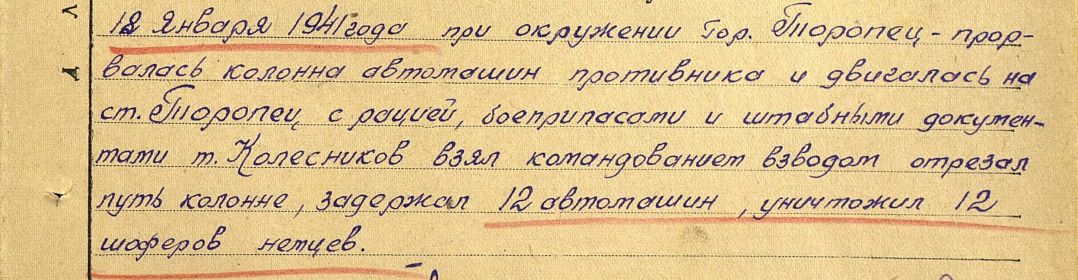 18 Января 1941 года при окружении гор. Торопец - прор-
валась колонна автомашин противника и двигалась на
ст. Торопец, с рацией, боеприпасами и штабными докумен-
тами т. Колесников взял командованием взводом отрезал
путь колонне, задержал 12 автомашин, уничтожил 12
шоферов немцев.